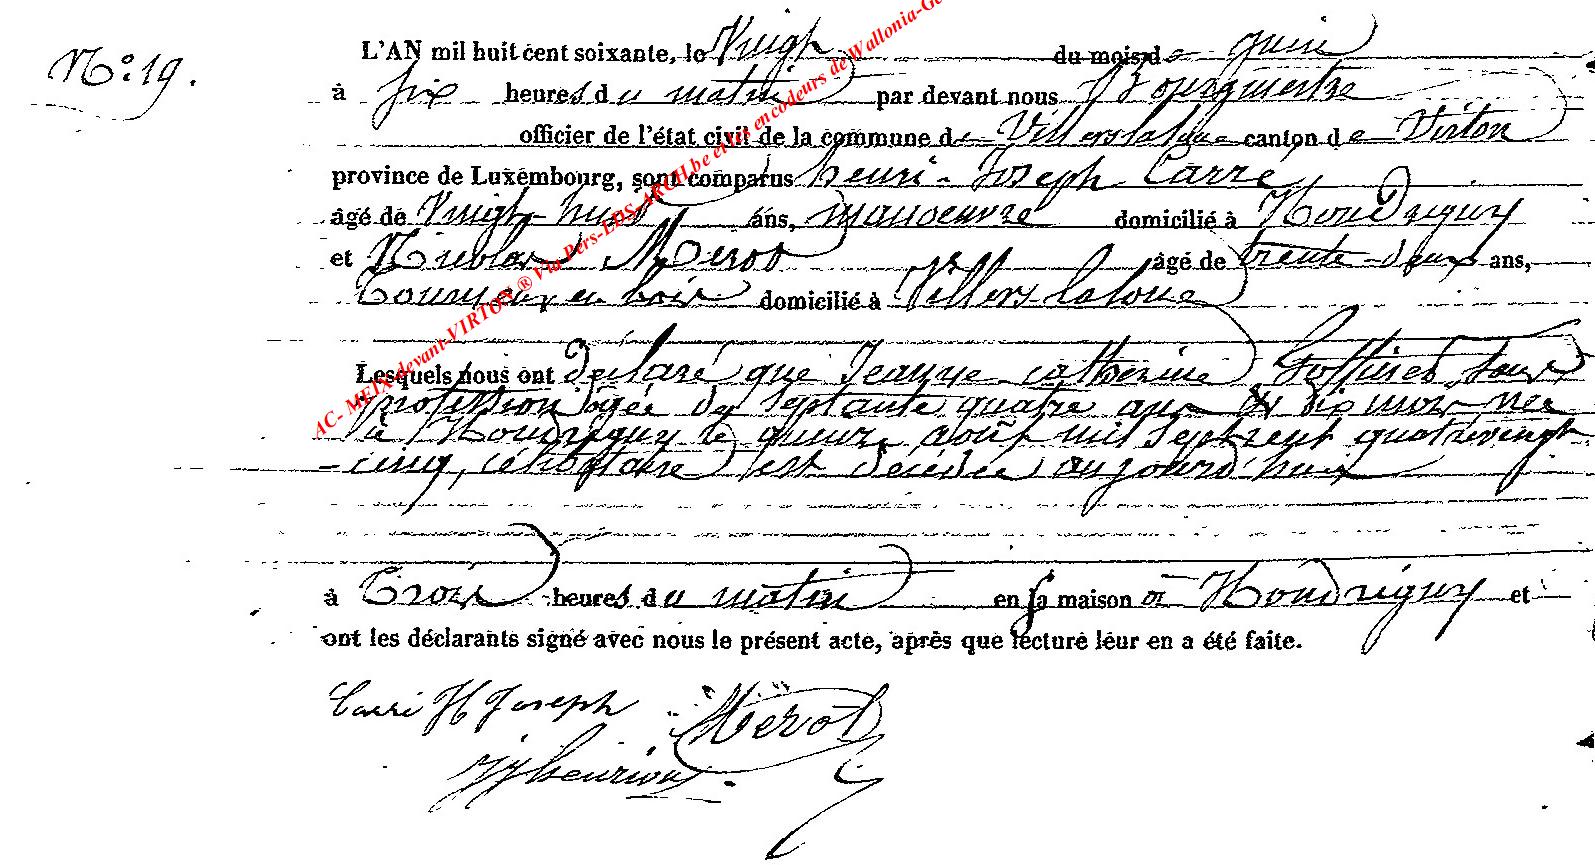 N° 19.
L'AN mil huit cent soixante, le Vingt du mois de juin
à six heures du matin par devant nous Bourgmestre
officier de l'état civil de la commune de Villers la loue canton de Virton
province de Luxembourg, sont comparus henri-Joseph Carré
âgé de Vingt-huit ans, manoeuvre domicilié à Houdrigny
et Nicolas Merot âgé de trente-deux ans,
Tourneur en bois domicilié à Villers laloue
Lesquels nous ont déclaré que Jeanne catherine Goffinet, sans
profession âgée de septante quatre ans et dix mois née
à Houdrigny le quinze août mil sept cent quatrevingt
-cinq, célibataire est décédée aujourd'hui
à Trois heures du matin en sa maison à Houdrigny et
ont les déclarants signé avec nous le présent acte, après que lecture leur en a été faite.
Carré H Joseph Merot
AC- MEIX-devant-VIRTON ® Via Pers-LDS-ARCH.be et les encodeurs de Wallonia-Ge